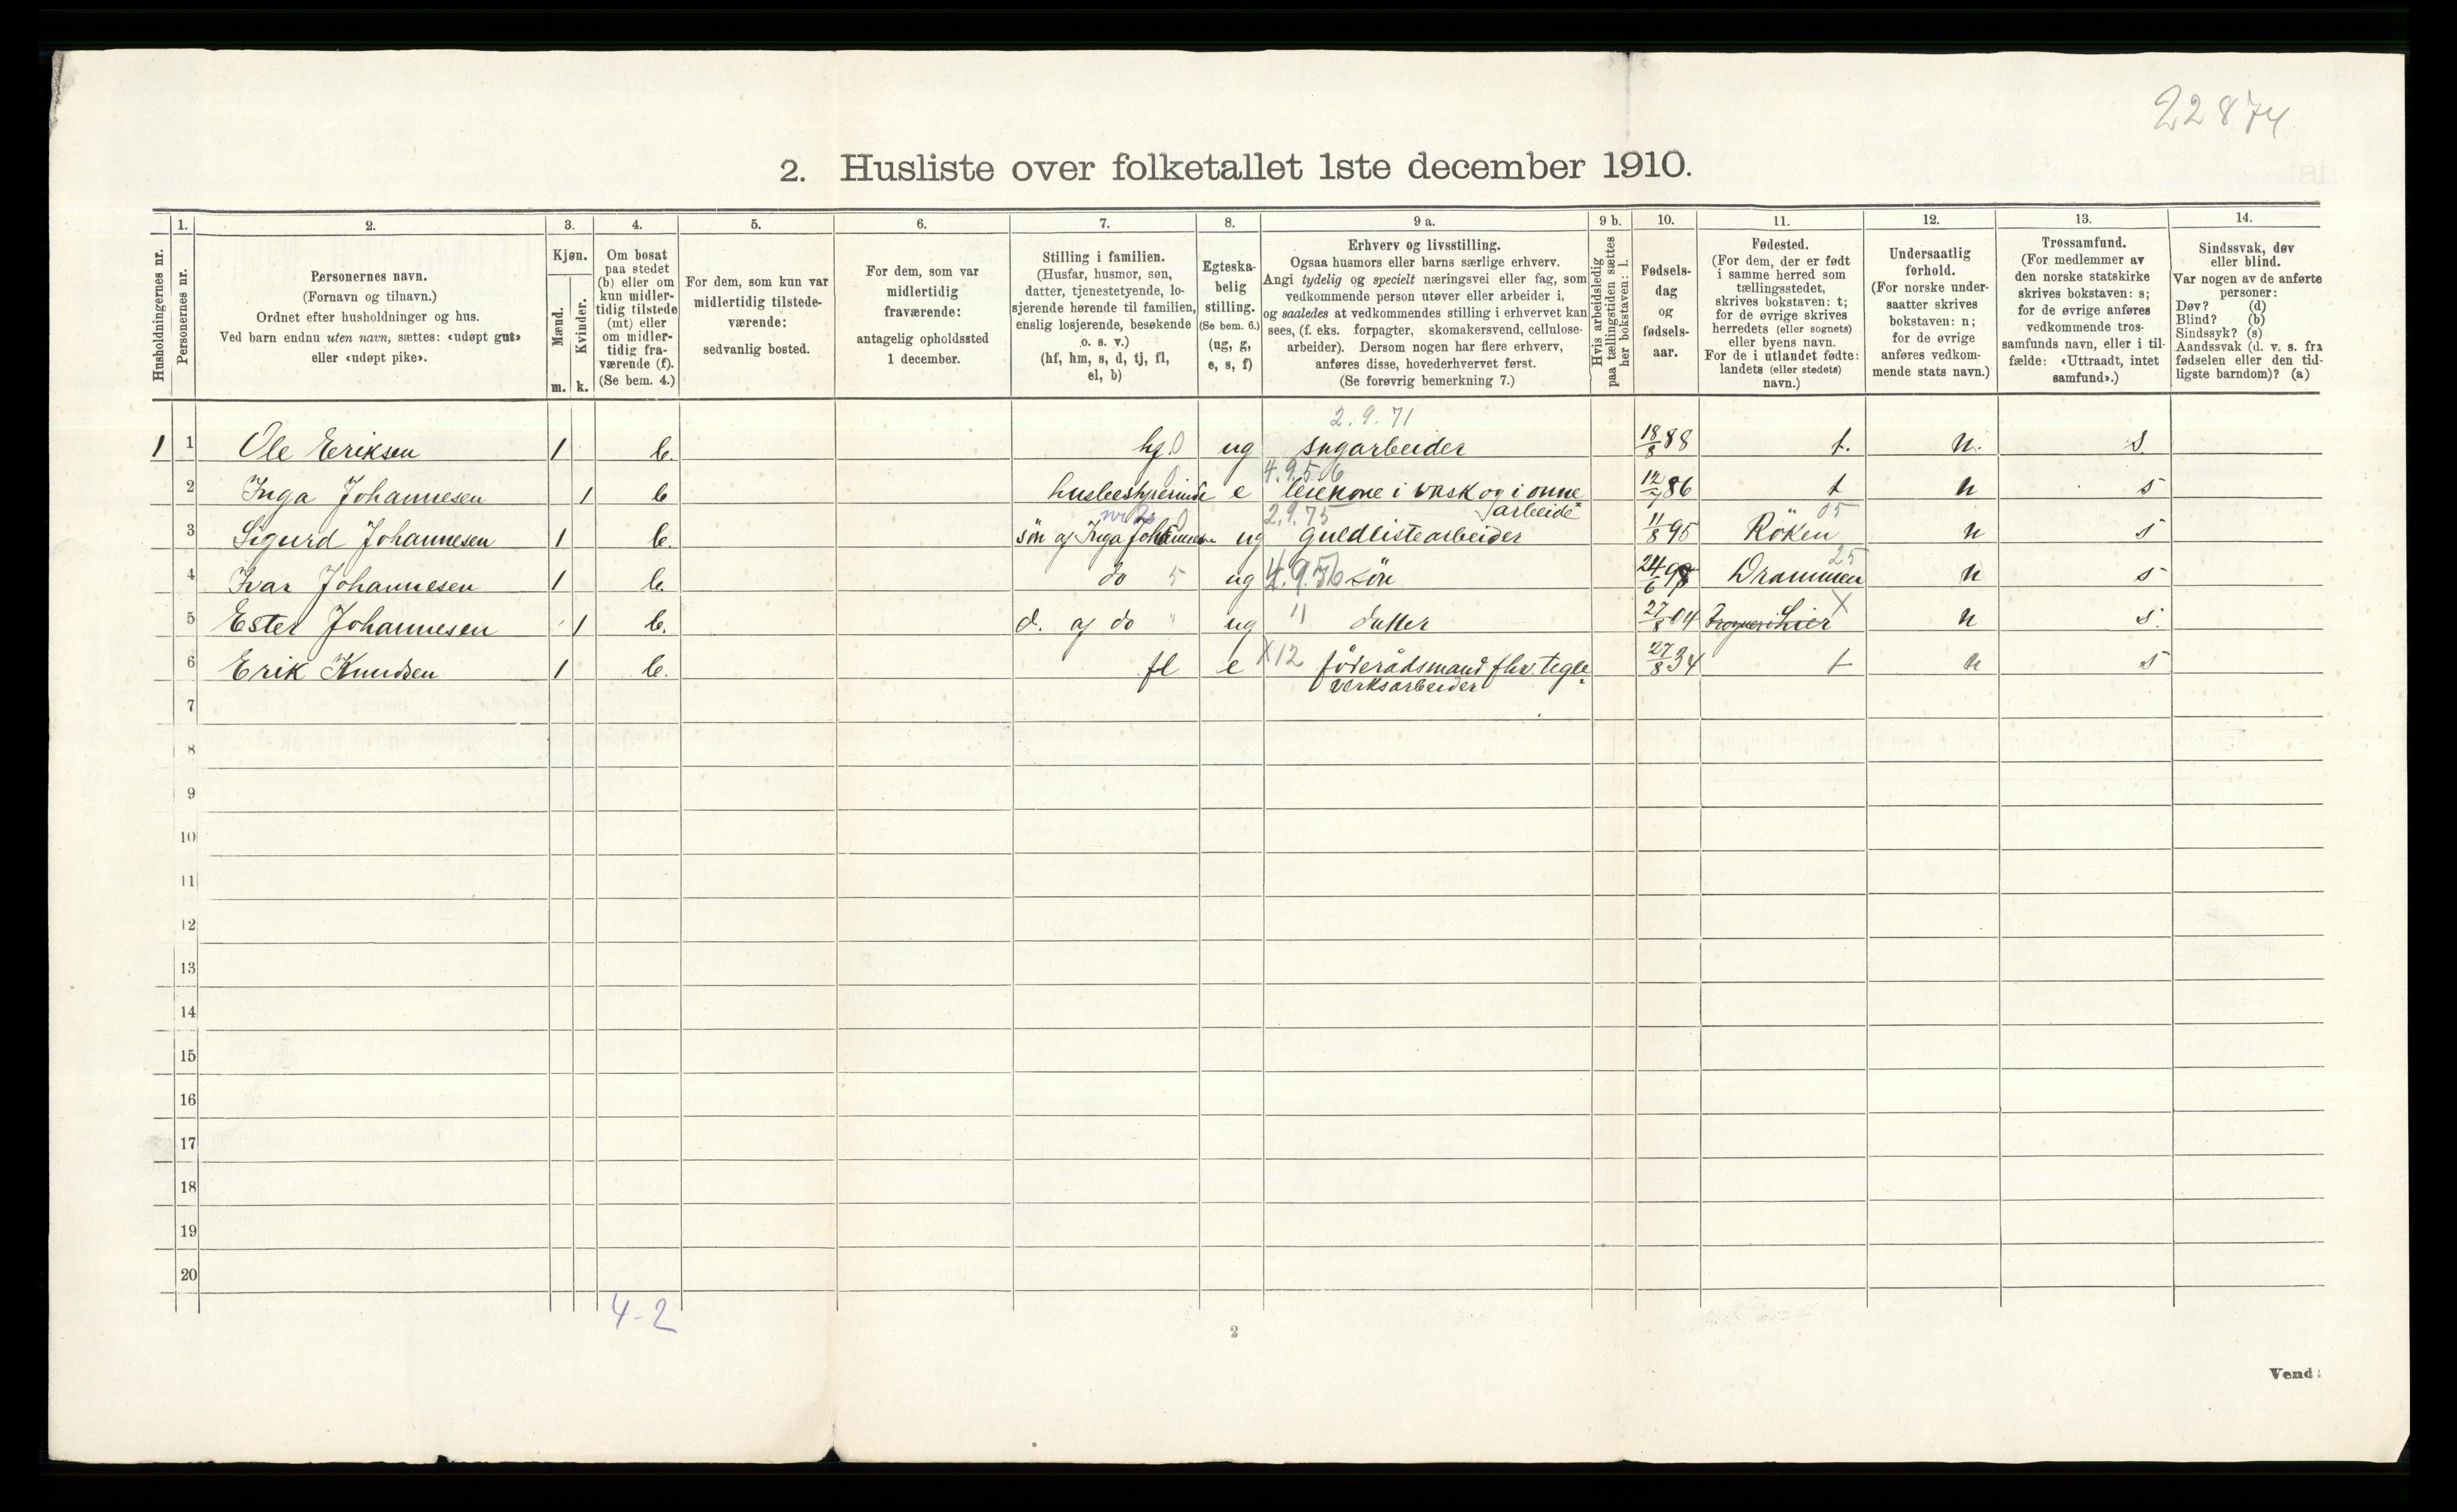 22874
2. Husliste over folketallet 1ste december 1910.
Husholdningernes nr.
1.
Personernes nr.
2.
Personernes navn.
(Fornavn og tilnavn.)
Ordnet efter husholdninger og hus.
Ved barn endnu uten navn, sættes: «udøpt gut»
eller «udøpt pike».
3.
Kjøn.
Mænd.
Kvinder.
m. k.
4.
Om bosat
paa stedet
(b) eller om
kun midler-
tidig tilstede
(mt) eller
om midler-
tidig fra-
værende (f).
(Se bem. 4.)
5.
For dem, som kun var
midlertidig tilstede-
værende:
sedvanlig bosted.
6.
For dem, som var
midlertidig
fraværende:
antagelig opholdssted
1 december.
7.
Stilling i familien.
(Husfar, husmor, søn,
datter, tjenestetyende, lo-
sjerende hørende til familien,
enslig losjerende, besøkende
o. s. v.)
(hf, hm, s, d, tj, fl,
el, b)
8.
Egteska-
belig
stilling.
(Se bem. 6.)
(ug, g,
e, s, f)
9 a.
Erhverv og livsstilling.
Ogsaa husmors eller barns særlige erhverv.
Angi tydelig og specielt næringsvei eller fag, som
vedkommende person utøver eller arbeider i,
og saaledes at vedkommendes stilling i erhvervet kan
sees, (f. eks. forpagter, skomakersvend, cellulose-
arbeider). Dersom nogen har flere erhverv,
anføres disse, hovederhvervet først.
(Se forøvrig bemerkning 7.)
9 b.
Hvis arbeidsledig
paa tællingstiden sættes
her bokstaven: l.
10.
Fødsels-
dag
og
fødsels-
aar.
11.
Fødested.
(For dem, der er født
i samme herred som
tællingsstedet,
skrives bokstaven: t;
for de øvrige skrives
herredets (eller sognets)
eller byens navn.
For de i utlandet fødte:
landets (eller stedets)
navn.)
12.
Undersaatlig
forhold.
(For norske under-
saatter skrives
bokstaven: n;
for de øvrige
anføres vedkom-
mende stats navn.)
13.
Trossamfund.
(For medlemmer av
den norske statskirke
skrives bokstaven: s;
for de øvrige anføres
vedkommende tros-
samfunds navn, eller i til-
fælde: «Uttraadt, intet
samfund».)
14.
Sindssvak, døv
eller blind.
Var nogen av de anførte
personer:
Døv? (d)
Blind? (b)
Sindssyk? (s)
Aandssvak (d. v. s. fra
fødselen eller den tid-
ligste barndom)? (a)
2.9.71
1 1 Ole Eriksen 1 b. hf. 0 ug sagarbeider 18/8 88 t. n. s.
4.9.5.6
2 Inga Johannesen 1 b e leiekone i vask og i onne 86 t n s
arbeide
nr 2s 2.9.75 05
3 Sigurd Johannesen 1 b. søn af Inga Johannesen ug guldlistearbeider 11/8 95 Röken n s
25
4 Ivar Johannesen 1 b. do 5 ug 4.9.56 søn 24/6 98 Drammen n s
5 Ester Johannesen 1 b. d. af do " ug " datter 27/8 04 Lier X n s.
6 Erik Knudsen 1 b. fl e X12 föderådsmand fhv. tegl= 27/8 34 t n s
verksarbeider
7
8
9
10
11
12
13
14
15
16
17
18
19
20
4-2
2
Vend!